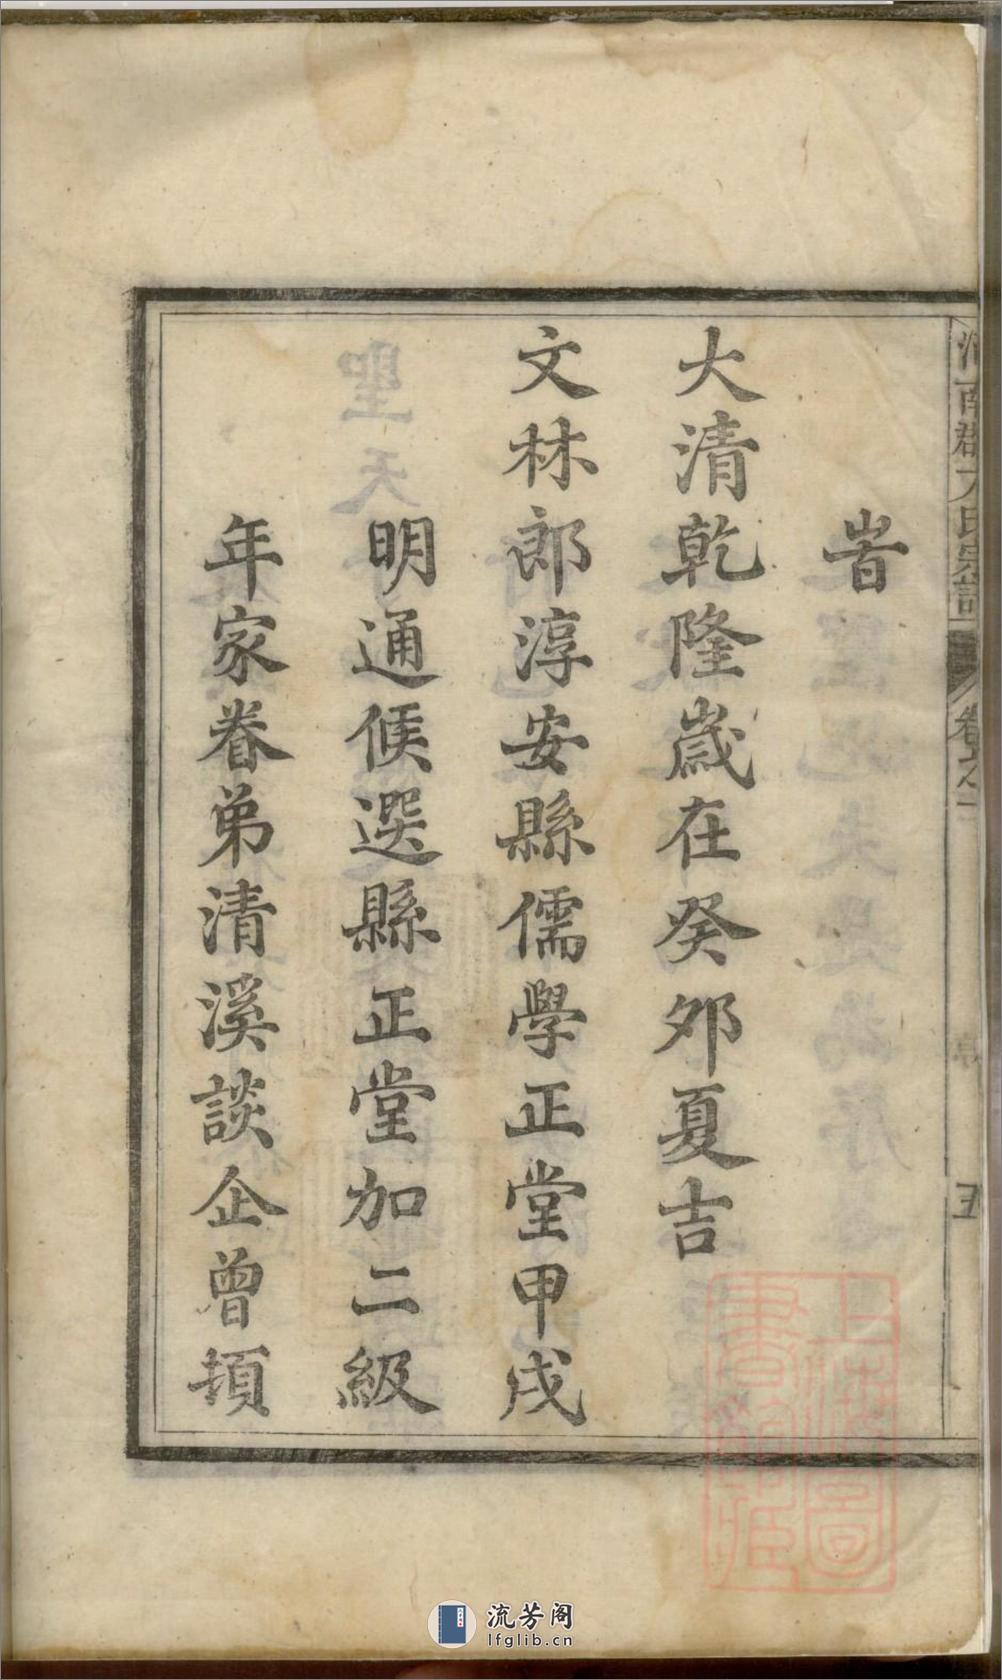 旹
大清乾隆歲在癸夘夏吉
文林郎淳安縣儒學正堂甲戌
明通候選縣正堂加二級
年家眷弟清溪談企曾頓
卷之一
五
上海圖書館藏
流芳阁
lfglib.cn